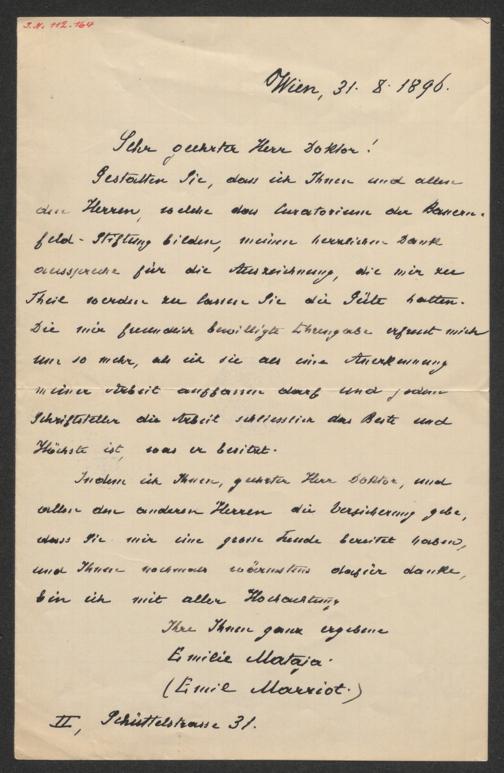 I.N. 112.164
Wien, 31. 8. 1896.
Sehr geehrter Herr Doktor!
Gestatten Sie, dass ich Ihnen und allen
den Herren, welche das Curatorium der Bauern-
feld-Stiftung bilden, meinen herzlichen Dank
ausspreche für die Auszeichnung, die mir zu
Theil werden zu lassen Sie die Güte hatten.
Die mir freundlich bewilligte Ehrengabe erfreut mich
um so mehr, als ich sie als eine Anerkennung
meiner Arbeit auffassen darf und jedem
Schriftsteller die Arbeit schliesslich das Beste und
Höchste ist, was er besitzt.
Indem ich Ihnen, geehrter Herr Doktor, und
allen den anderen Herren die Versicherung gebe,
dass Sie mir eine grosse Freude bereitet haben,
und Ihnen nochmals wärmstens dafür danke,
bin ich mit aller Hochachtung
Ihre Ihnen ganz ergebene
Emilie Mataja.
(Emil Marriot.)
II, Schüttelstrasse 31.